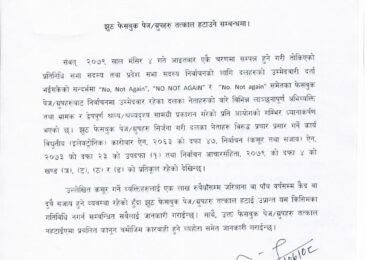 झुठ फेसबुक पेज/ग्रुपहरु तत्काल हटाउने सम्बन्धमा।
सम्बत् २०७९ साल मंसिर ४ गते आइतबार एकै चरणमा सम्पन्न हुने गरी तोकिएको
प्रतिनिधि सभा सदस्य तथा प्रदेश सभा सदस्य निर्वाचनको लागि दलहरुको उम्मेदवारी दर्ता
भईसकेको सन्दर्भमा "No, Not Again", "NO NOT AGAIN" र "No. Not again" समेतका फेसबुक
पेज/ग्रुपहरुबाट निर्वाचनमा उम्मेदवार रहेका दलका नेताहरुको बारे विभिन्न लाञ्छनापूर्ण अभिव्यक्ति
तथा भ्रामक र द्वेषपूर्ण श्रव्य/श्रव्यदृश्य सामाग्री प्रकाशन गरेको प्रति आयोगको गम्भिर ध्यानाकर्षण
भएको छ। झुठ फेसबुक पेज/ग्रुपहरु सिर्जना गरी दलका नेताहरु विरुद्ध प्रचार प्रसार गर्ने कार्य
विद्युतीय (इलेक्ट्रोनिक) कारोबार ऐन, २०६३ को दफा ४७, निर्वाचन (कसूर तथा सजाय) ऐन,
२०७३ को दफा २३ को उपदफा (१) तथा निर्वाचन आचारसंहिता, २०७९ को दफा ४ को
खण्ड को प्रतिकूल रहेको देखिन्छ।
उल्लेखित कसूर गर्ने व्यक्तिहरुलाई एक लाख रुपैयाँसम्म जरिवाना वा पाँच वर्षसम्म कैद वा
दुवै सजाय हुने व्यवस्था रहेको हुँदा झुठ फेसबुक पेज/ग्रुपहरु तत्काल हटाई उप्रान्त यस किसिमका
गतिविधि नगर्न सम्बन्धित सबैलाई जानकारी गराईन्छ। साथै, उक्त फेसबुक पेज/ग्रुपहरु तत्काल
नहटाईएमा प्रचलित कानून बमोजिम कारबाही हुने व्यहोरा समेत जानकारी गराईन्छ।